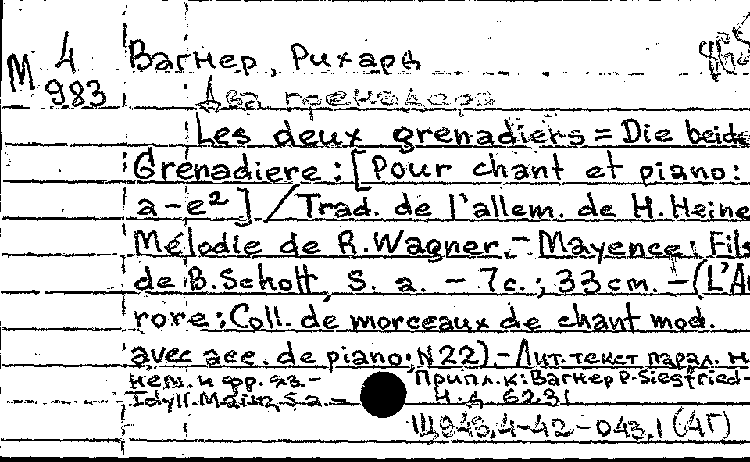 М 4
983
Вагнер, Рихард
Два гренадера
Les deux grenadiers = Die beide
Grenadiere : [Pour chant et piano :
a-e²] / Trad. de l'allem. de H. Heine
Mélodie de R. Wagner. - Mayence : Fils
de B. Schott, S. a. - 7 c. ; 33 cm. - (L'Au
rore : Coll. de morceaux de chant mod.
avec acc. de piano; N 22) - Лит. текст парал. н
нем. и фр. яз. -
Припл. к: Вагнер Р. Siegfried-
Idyll. Mainz, S. a. -
Н. д. 6231
Щ943.4-42-043.1 (4Г)